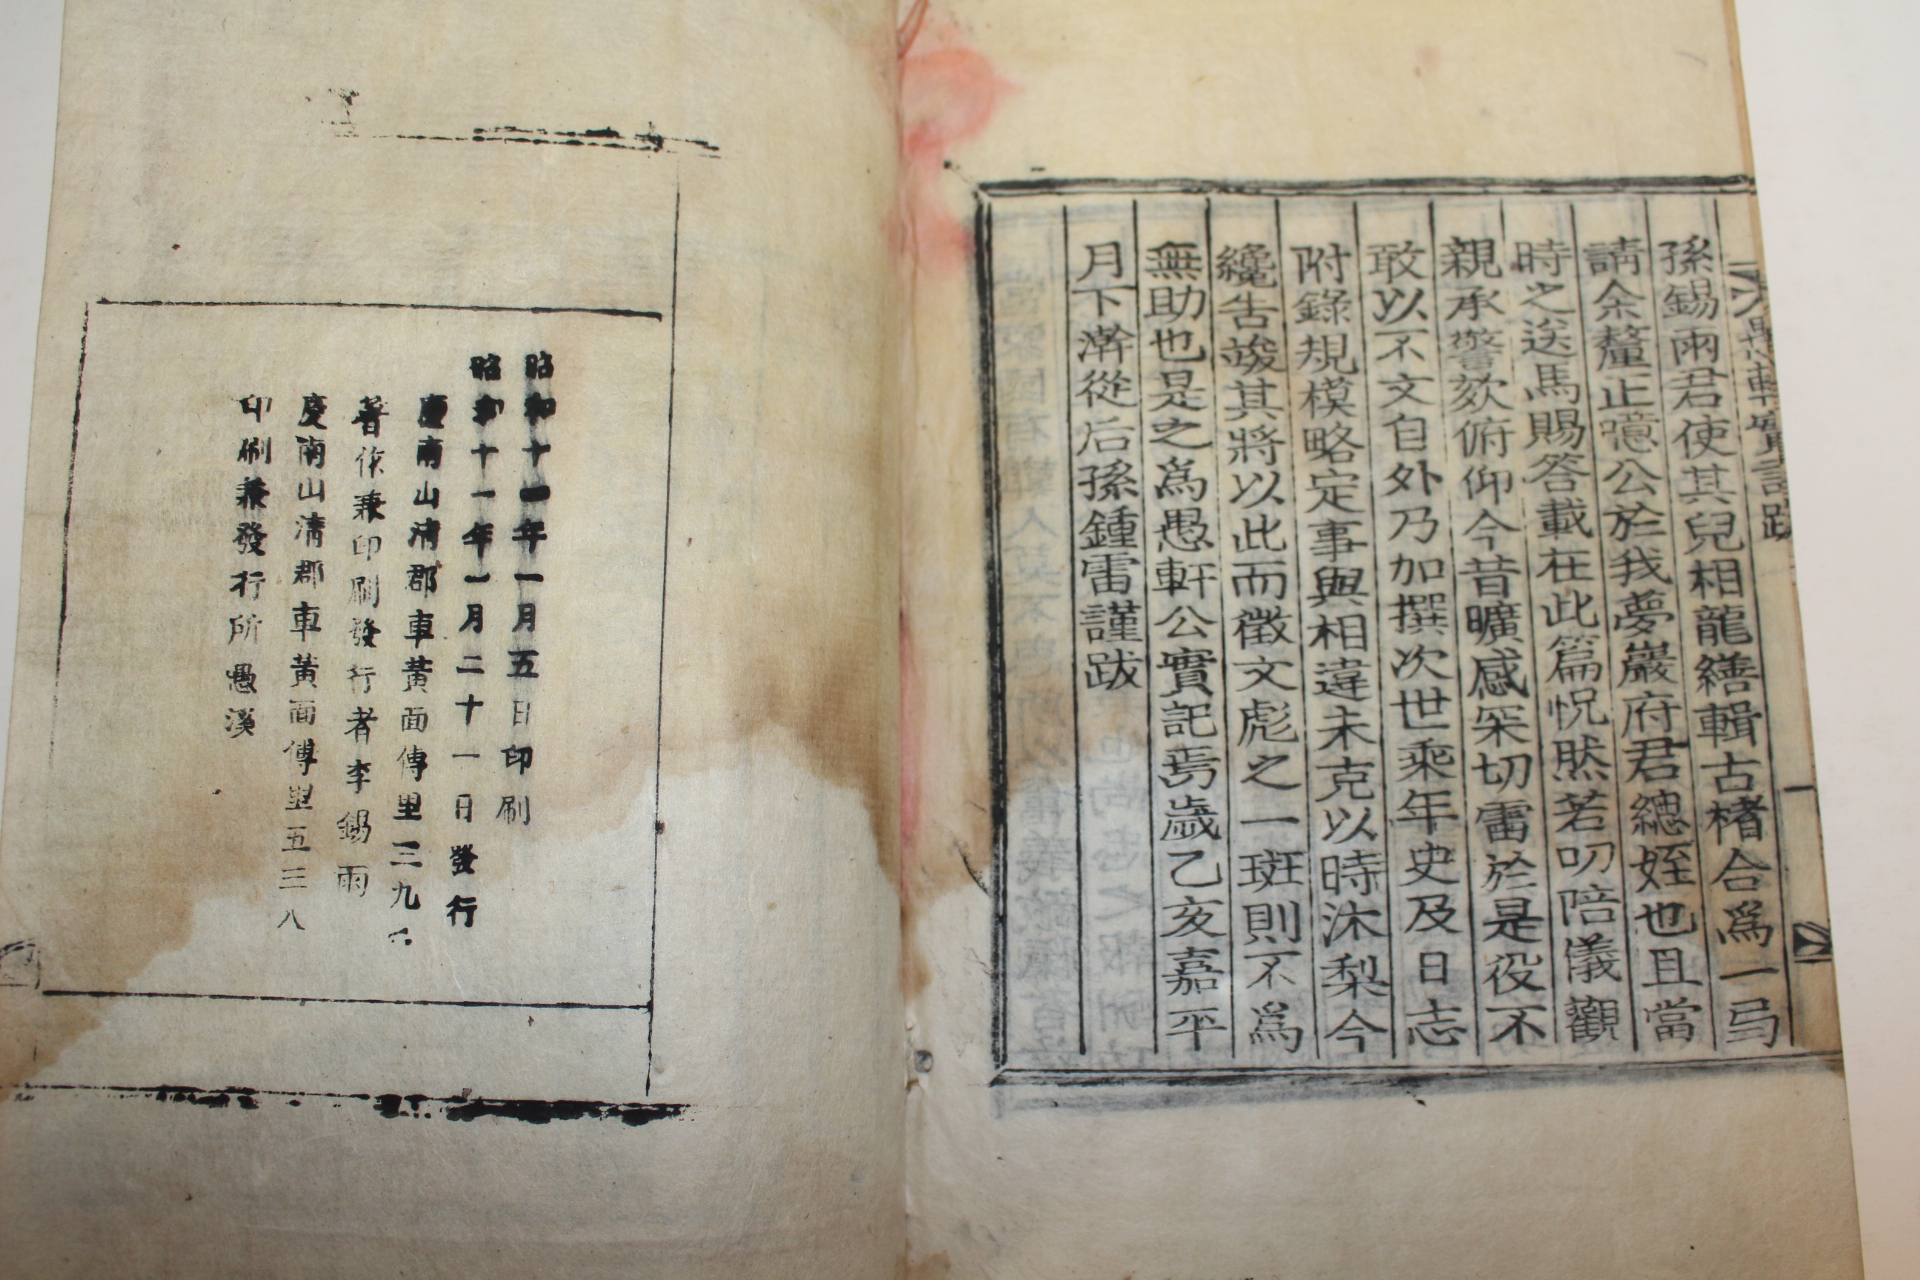 愚軒實記跋
孫錫雨君使其兒相龍繕輯古楮合爲一弓
請余釐正噫公於我夢巖府君總姪也且當
時之送馬賜答載在此篇怳然若叨陪儀觀
親承警欬俯仰今昔曠感采切雷於是役不
敢以不文自外乃加撰次世乘年史及日志
附錄規模略定事與相違未克以時沐梨今
纔告竣其將以此而徵文彪之一斑則不爲
無助也是之爲愚軒公實記焉歲乙亥嘉平
月下澣從后孫鍾雷謹跋
昭和十一年一月五日印刷
昭和十一年一月二十一日發行
慶南山淸郡車黃面傅里三九
著作兼印刷發行者李錫雨
慶南山淸郡車黃面傅里五三八
印刷兼發行所愚溪